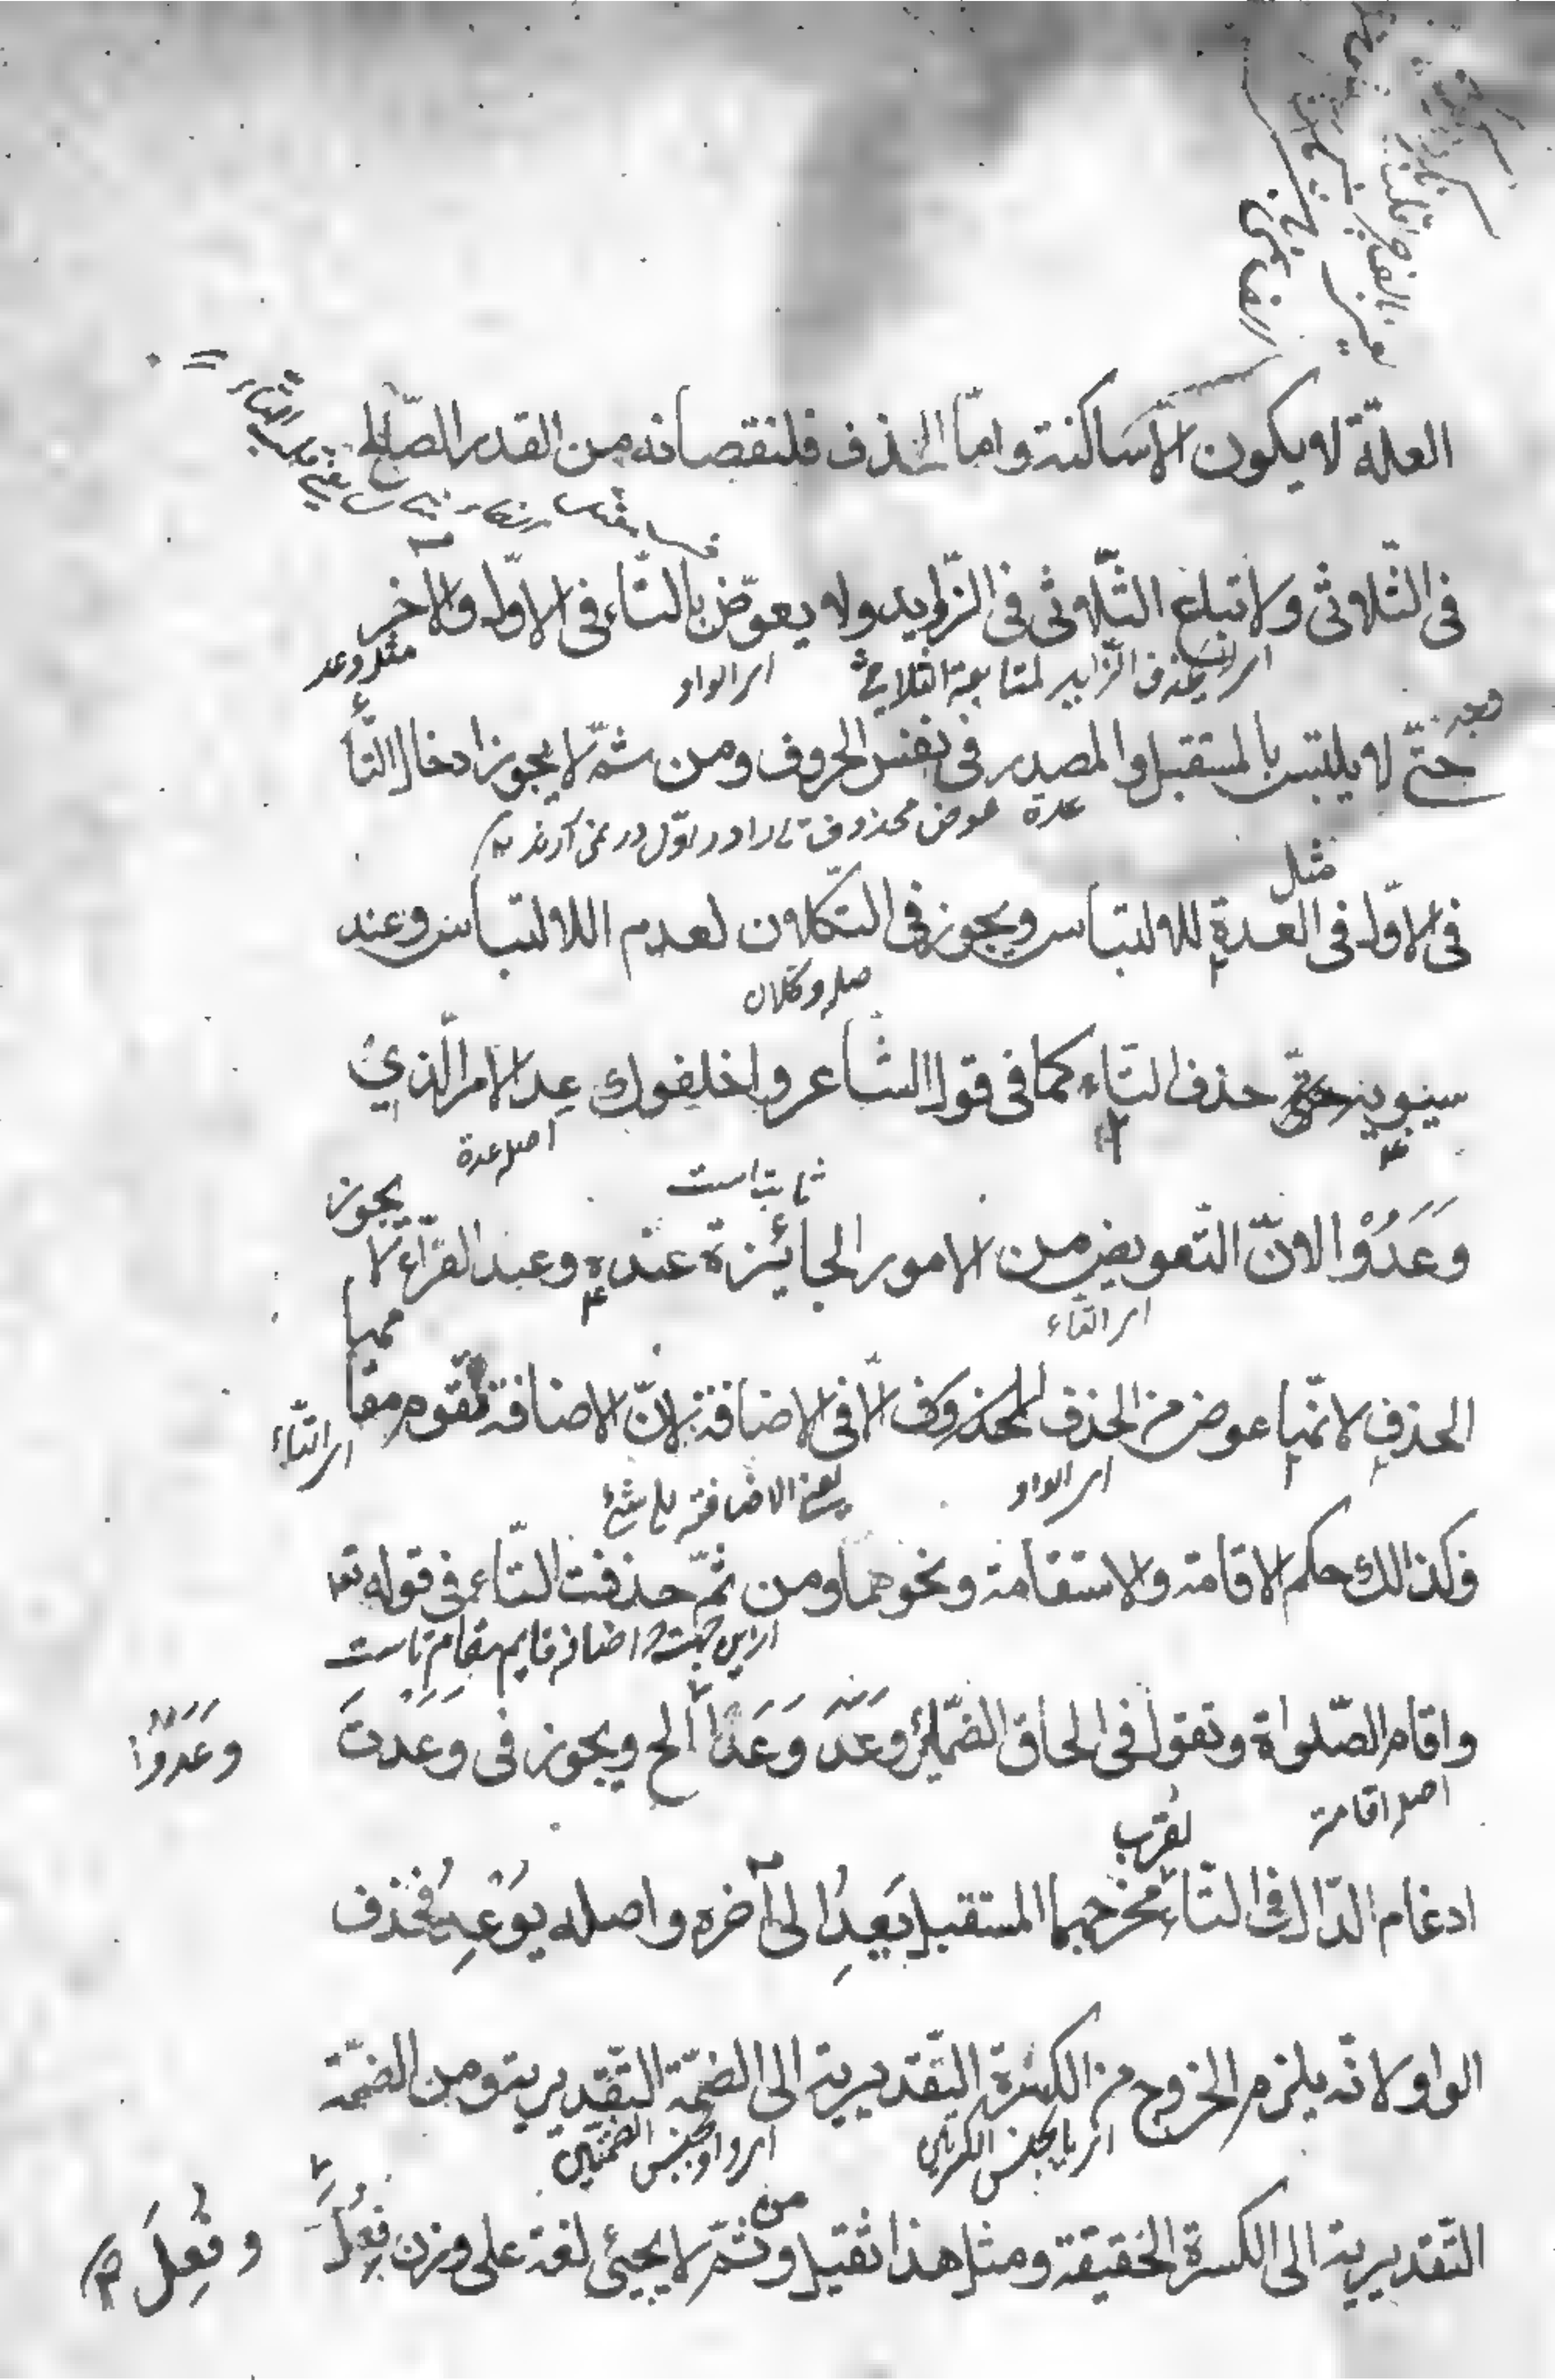 العلّة لا يكون الّا ساكنة وامّا الحذف فلنقصانه من القدر الصّالح
فى الثّلاثى ولاتباع الثّلاثى فى الزّوايد ولا يعوّض بالتّاء فى الاوّل والآخر
اى الواو
مثل وعد
حتّى لا يلتبس بالمستقبل والمصدر فى نفس الحروف ومن ثمّ لا يجوز ادخال التّاء
عدة عوض محذوف تا را در اوّل در نمى آرند
مثل
فى الاوّل فى العدة للالتباس ويجوز فى التّكلان لعدم الالتباس وعند
اصله وكلان
سيبويه حذف التّاء كما فى قول الشّاعر واخلفوك عِد الامر الّذى
اصله عدة
ثابت است
وَعَدُوْا لانّ التّعويض من الامور الجائزة عنده وعند الفرّاء لا يجوز
اى التّاء
الحذف لانّها عوض من الحذف المحذوف الّا فى الاضافة لانّ الاضافة تقوم مقامها
اى التّاء
اى الواو
وكذالك حكم الاقامة والاستقامة ونحوهما ومن ثمّ حذفت التّاء فى قوله تع
از اين جهت كه اضافه قايم مقام تا است
واقام الصّلواة وتقول فى الحاق الضّمائر وَعَدَ وَعَدَا الخ ويجوز فى وَعَدتَ
وَعَدُوْا
اصله اقامة
لقرب
ادغام الدّال فى التّاء مخرجهما المستقبل يَعِدُ الى آخره واصله يَوْعِدُ فحذف
الواو لانّه يلزم الخروج من الكسرة التّقديرية الى الضّمّة التّقديرية ومن الضّمّة
التّقديرية الى الكسرة الحقيقة ومثل هذا ثقيل ومن ثمّ لا يجيئ لغة على وزن فِعُلَ
وفُعِلَ